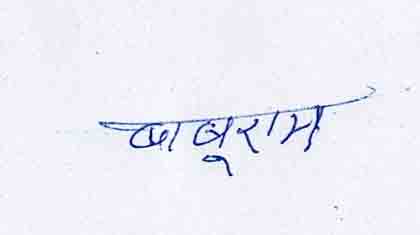 बाबूराम